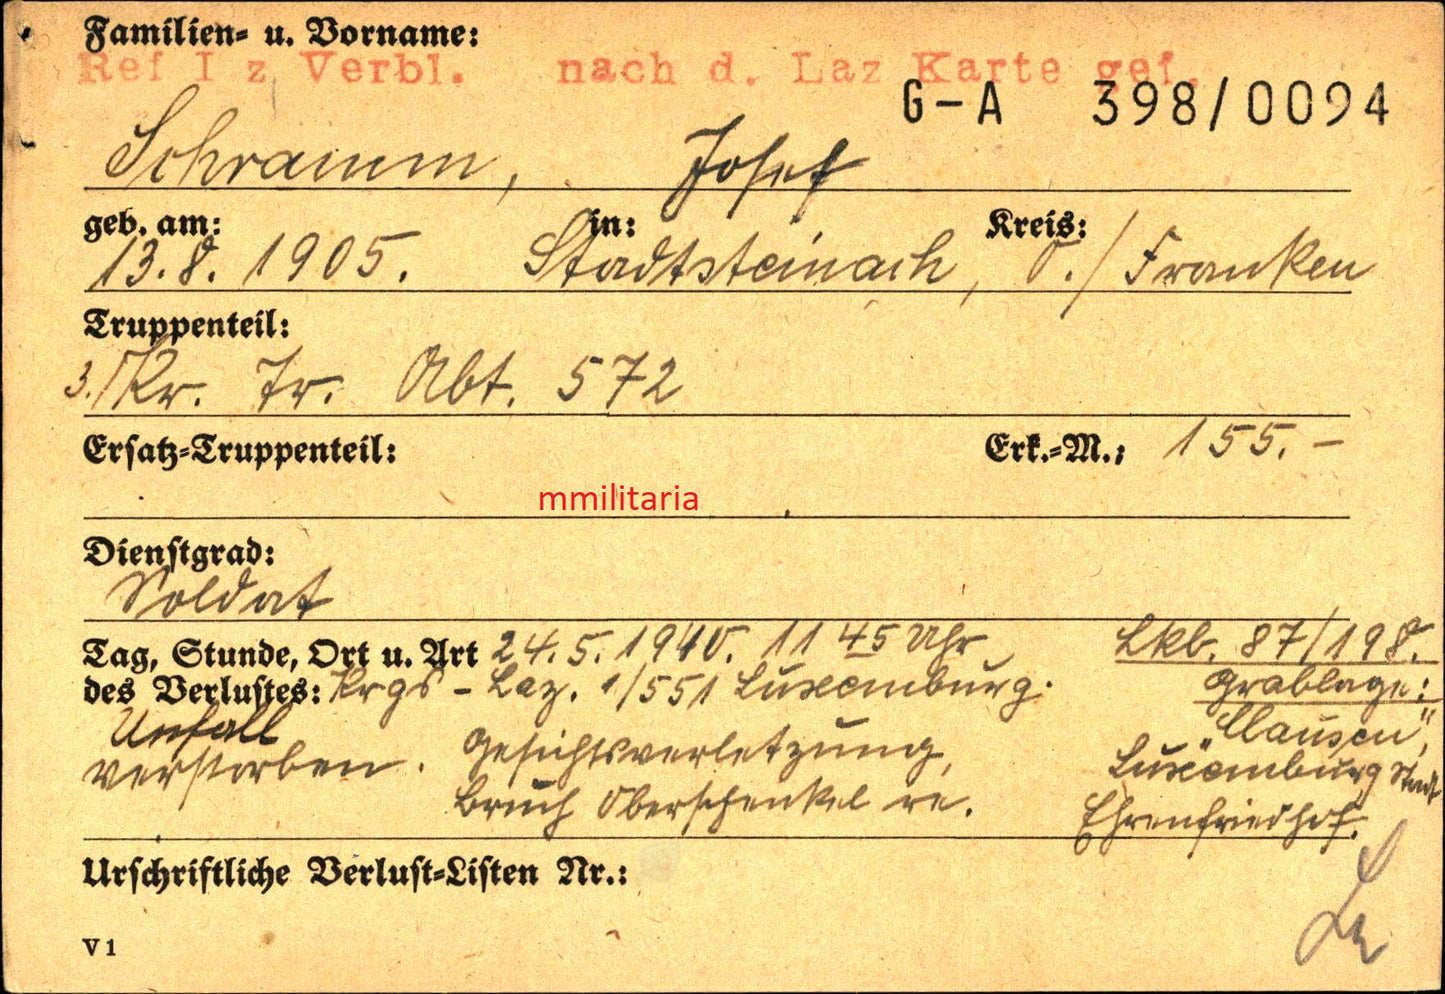 Familien- u. Vorname:
Ref I z Verbl. nach d. Laz Karte gef.
G-A 398/0094
Schramm, Josef
geb. am: in: Kreis:
13.8.1905. Stadtsteinach, O./Franken
Truppenteil:
3./Kr. Tr. Abt. 572
Ersatz-Truppenteil: Erk.-M.: 155.-
mmilitaria
Dienstgrad:
Soldat
Tag, Stunde, Ort u. Art 24.5.1940. 11 45 Uhr Lkb. 87/198.
des Verlustes: Krgs-Laz. 1/551 Luxemburg. Grablage:
Unfall "Clausen",
verstorben. Gesichtsverletzung, Luxemburg Stadt
Bruch Oberschenkel re. Ehrenfriedhof.
Urschriftliche Verlust-Listen Nr.:
V1